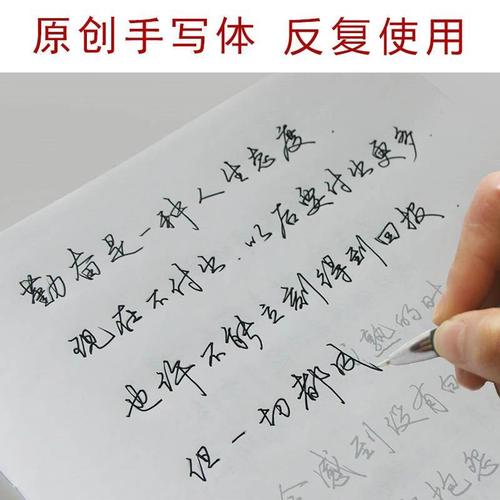 原创手写体 反复使用
勤奋是一种人生态度.
现在不付出.以后要付出更多.
也许不能立刻得到回报.
但一切都成熟的时
会感到没有白
抱怨